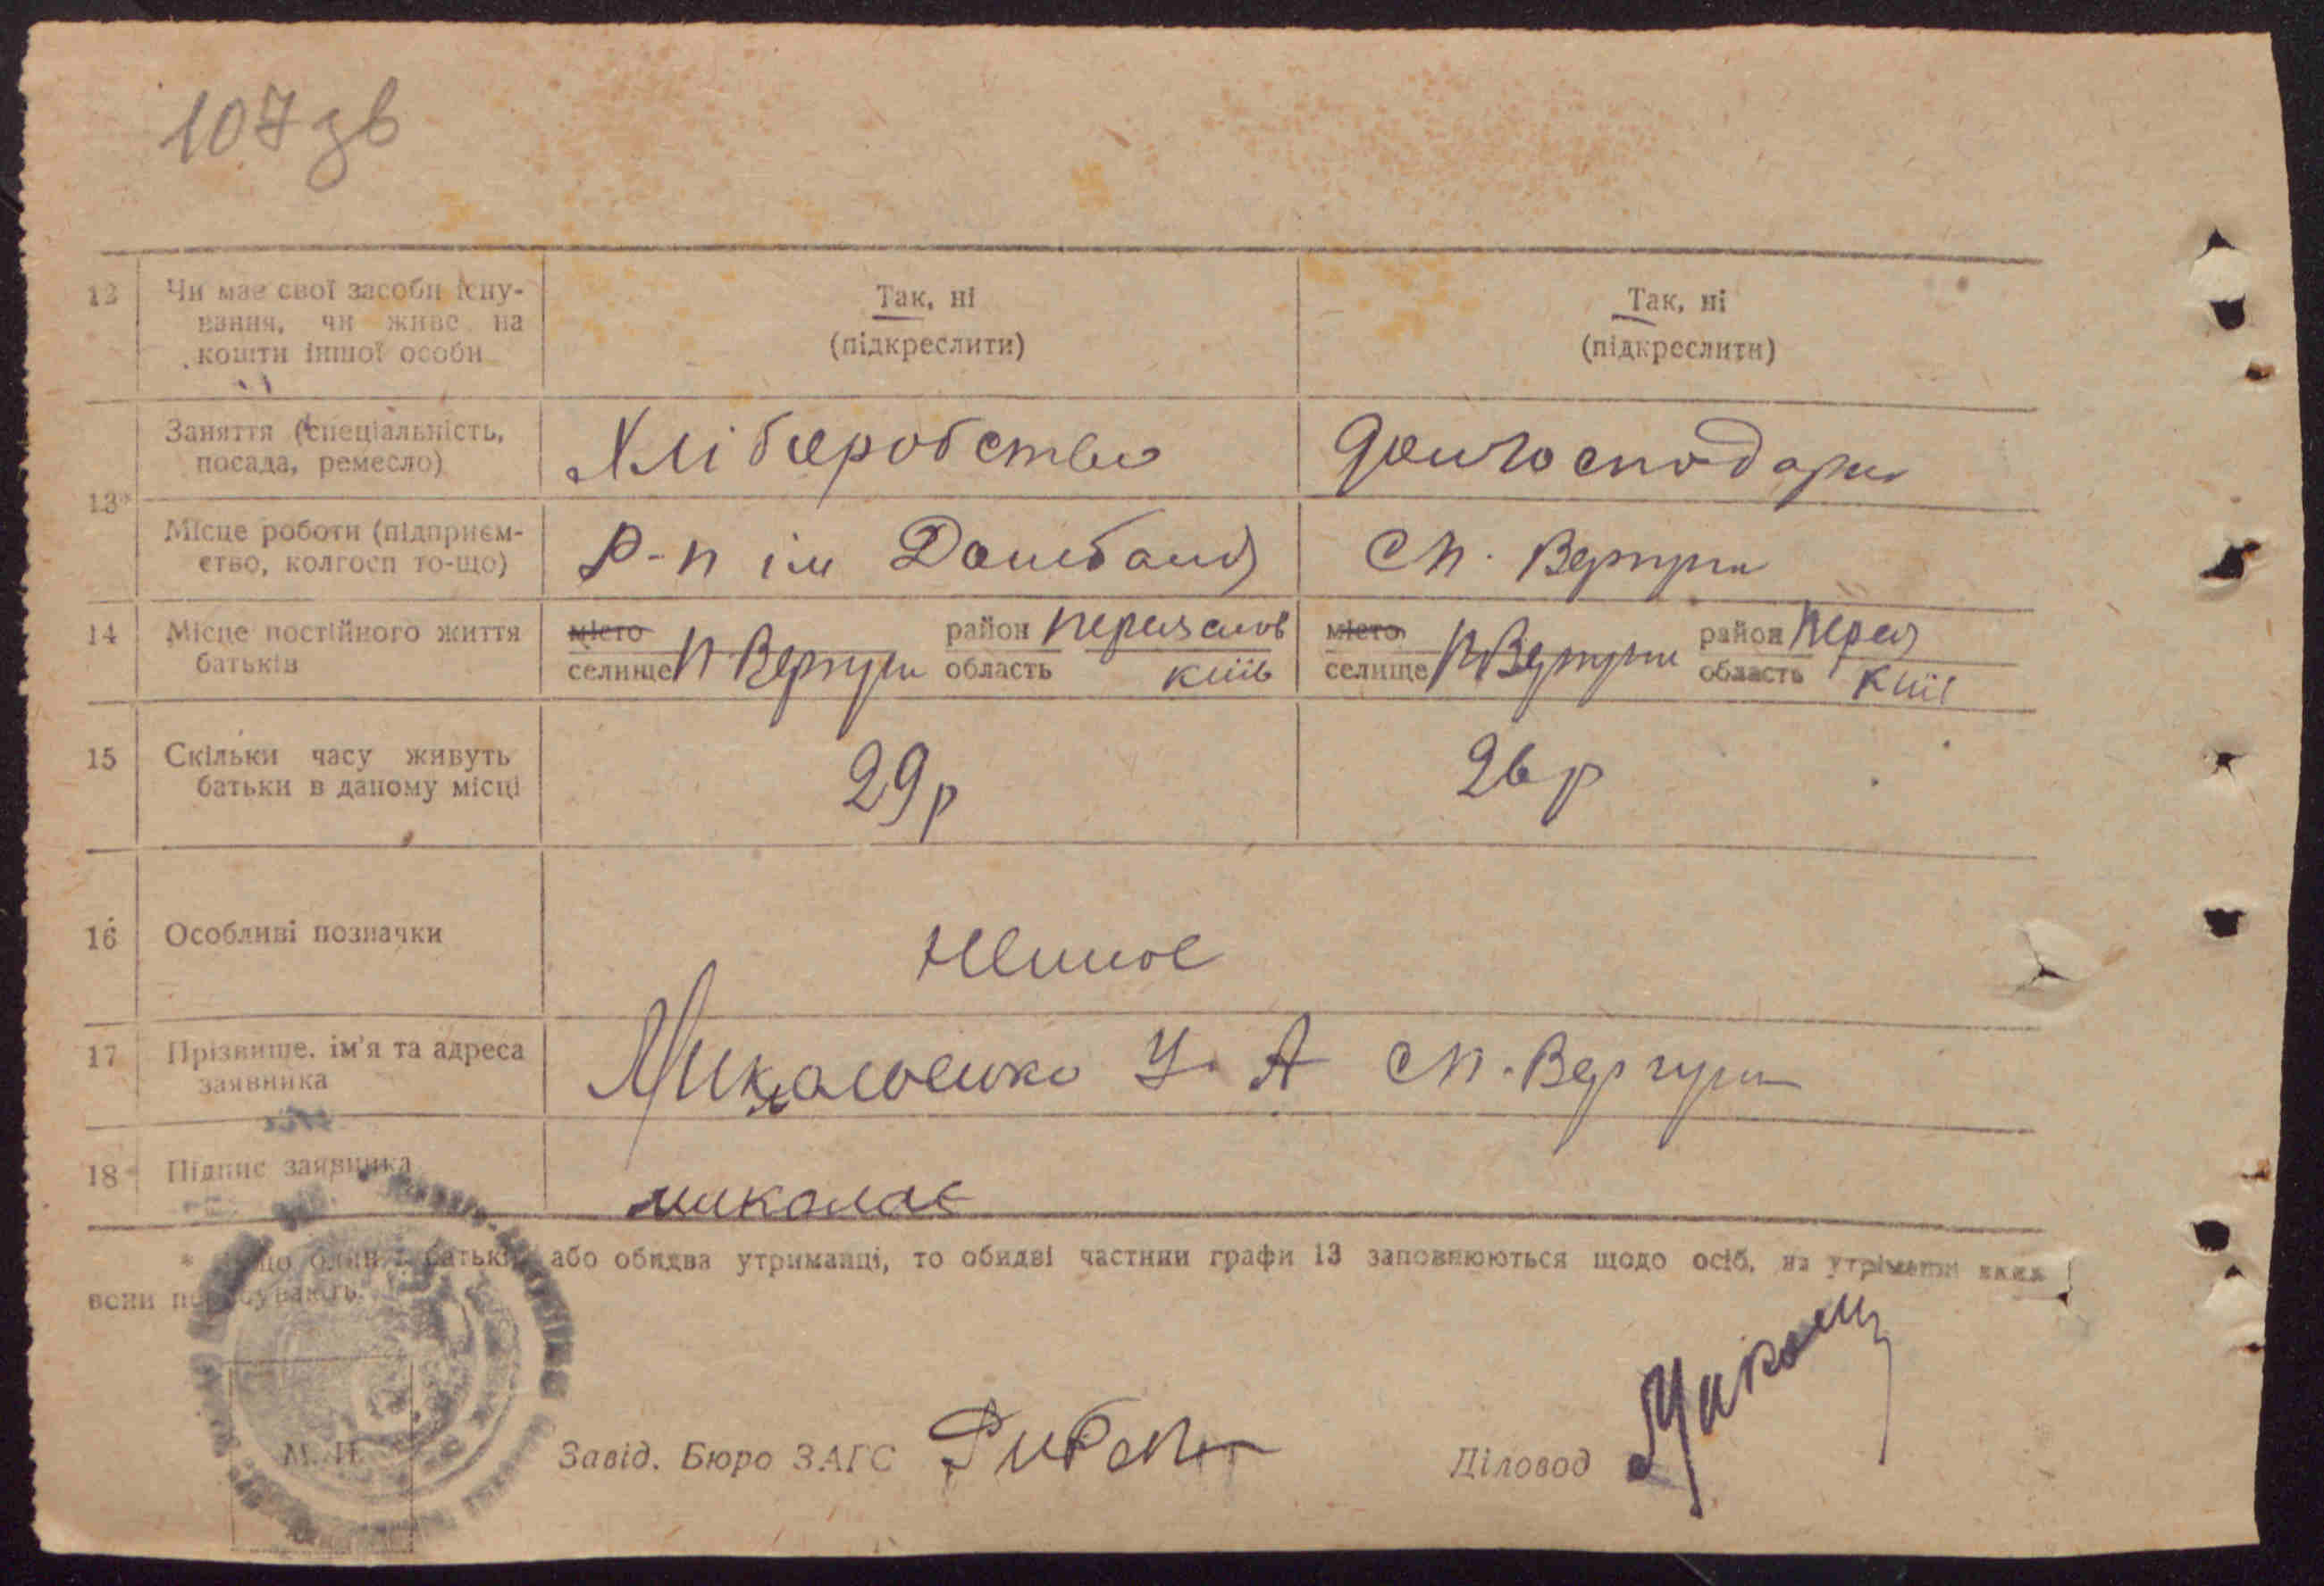 107 зв
12 Чи має свої засоби існу-
вання, чи живе на
кошти іншої особи
Так, ні
(підкреслити)
Так, ні
(підкреслити)
13*
Заняття (спеціальність,
посада, ремесло)
Хліборобство
домгосподарка
Місце роботи (підприєм-
ство, колгосп то-що)
ім
сп. Вергуни
14 Місце постійного життя
батьків
місто
селище П Вергуни
район Переяслов
область Київ
місто
селище П Вергуни
район Переяс
область Київ
15 Скільки часу живуть
батьки в даному місці
29 р
26 р
16 Особливі позначки
Немає
17 Прізвище, ім'я та адреса
заявника
Миколаєнко У. А сп. Вергуни
18 Підпис заявника
миколає
* батьків або обидва утриманці, то обидві частини графи 13 заповнюються щодо осіб, на утриманні яких
вони перебувають.
М. П.
Завід. Бюро ЗАГС
Діловод